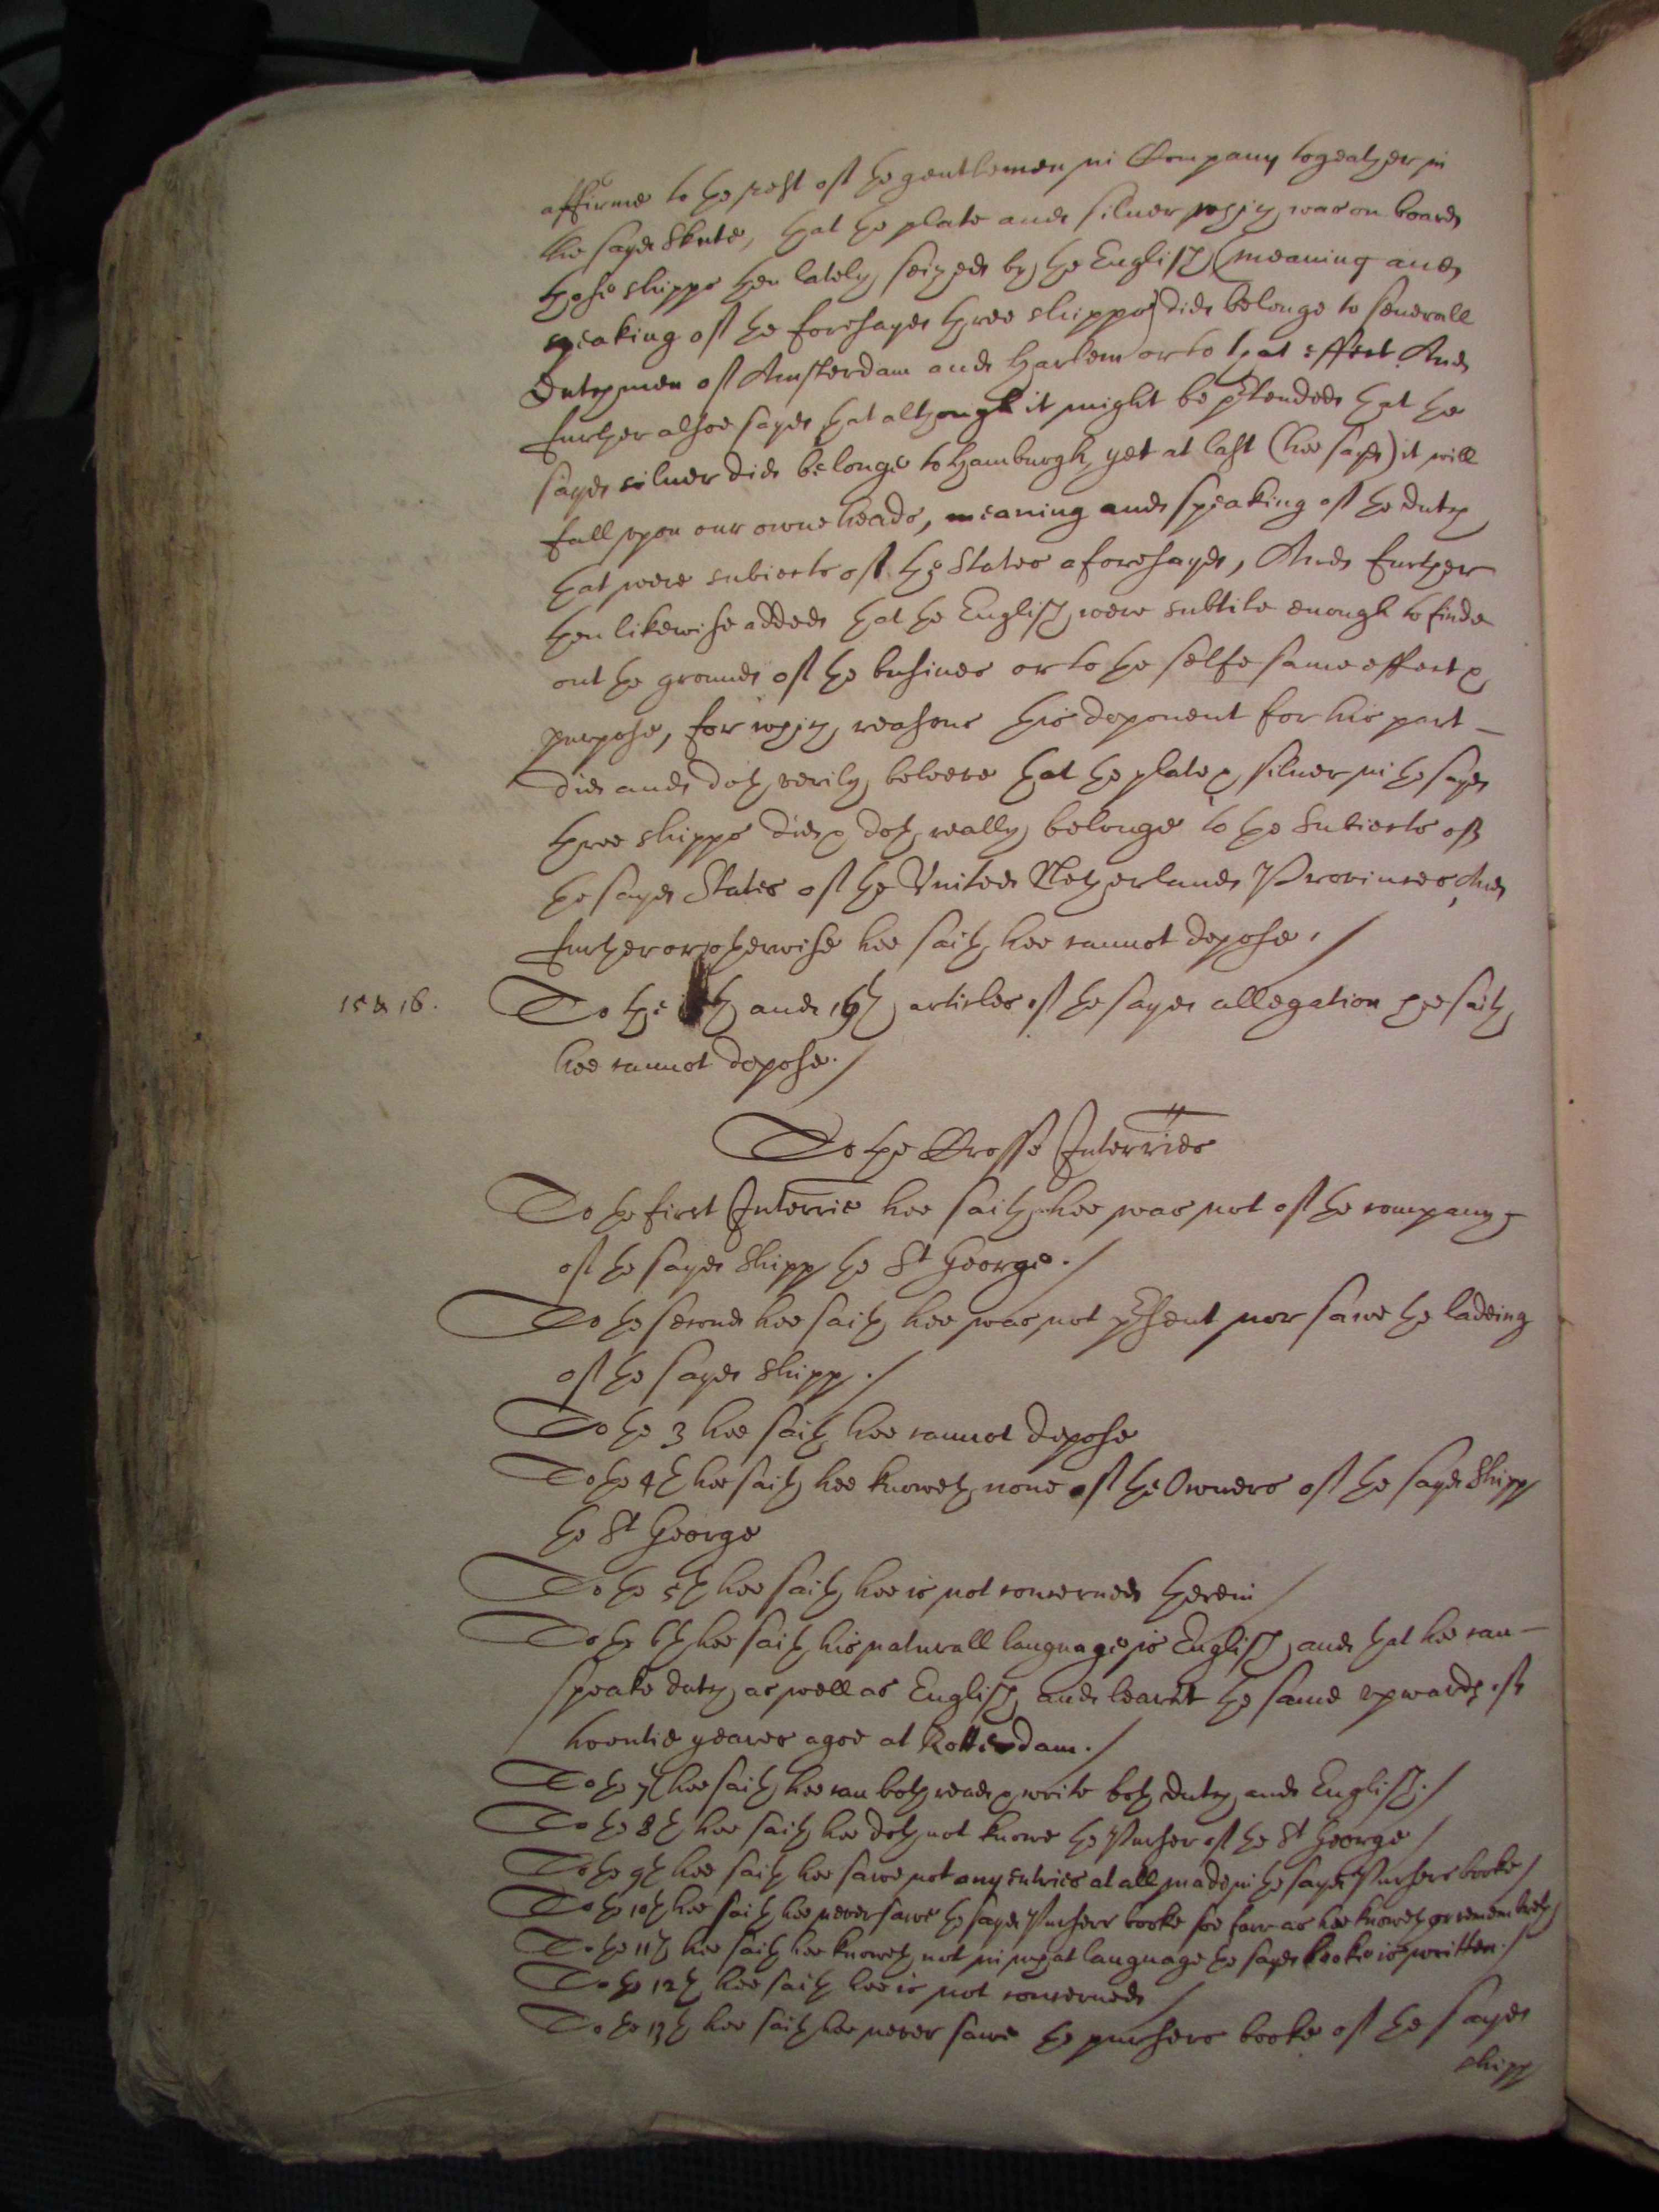 affirme to the rest of the gentlemen in Company togeather in
the sayd Skute, that the plate and silver which was on board
those shipps then lately seized by the English (meaning and
speaking of the foresayd three shipps) did belonge to severall
Dutchmen of Amsterdam and Harlem or to that effect And
further alsoe sayd that although it might be p̄tended that the
sayd silver did belonge to Hamburgh, yet at last (hee sayd) it will
fall upon our owne heads, meaning and speaking of the dutch
that were subiects of the States aforesayd, And further
then likewise added that the English were subtile enough to finde
out the ground of the busines or to the selfe same effect &
purpose, for which reasons this deponent for his part
did and doth verily beleeve that the plate & silver in the sayd
three shipps did & doth really belonge to the Subiects of
the sayd States of the United Netherlands Provinces, And
further or otherwise hee saith hee cannot depose. /
15 & 16.
To the th and 16th articles of the sayd allegation hee saith
hee cannot depose. /
To the Crosse Interries
To the first Interrie hee saith hee was not of the company
of the sayd Shipp the St George. /
To the second hee saith hee was not p̄sent nor sawe the ladeing
of the sayd Shipp. /
To the 3 hee saith hee cannot depose
To the 4th hee saith hee knoweth none of the Owners of the sayd Shipp
the St George
To the 5th hee saith hee is not concerned therein /
To the 6th hee saith his naturall language is English, and that hee can
speake dutch as well as English and learnt the same upwards of
twentie yeares agoe at Rotterdam. /
To the 7th hee saith hee can both read & write both dutch and English. /
To the 8th hee saith hee doth not knowe the Purser of the St George /
To the 9th hee saith hee sawe not any entries at all made in the sayd Pursers booke /
To the 10th hee saith hee never sawe the sayd Pursers booke soe farr as hee knoweth or remembreth
To the 11th hee saith hee knoweth not in what language the sayd booke is written. /
To the 12th hee saith hee is not concerned /
To the 13th hee saith hee never sawe the pursers booke of the sayd
shipp